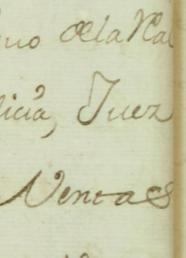 no de la Rl
licia, Juez
Ventas